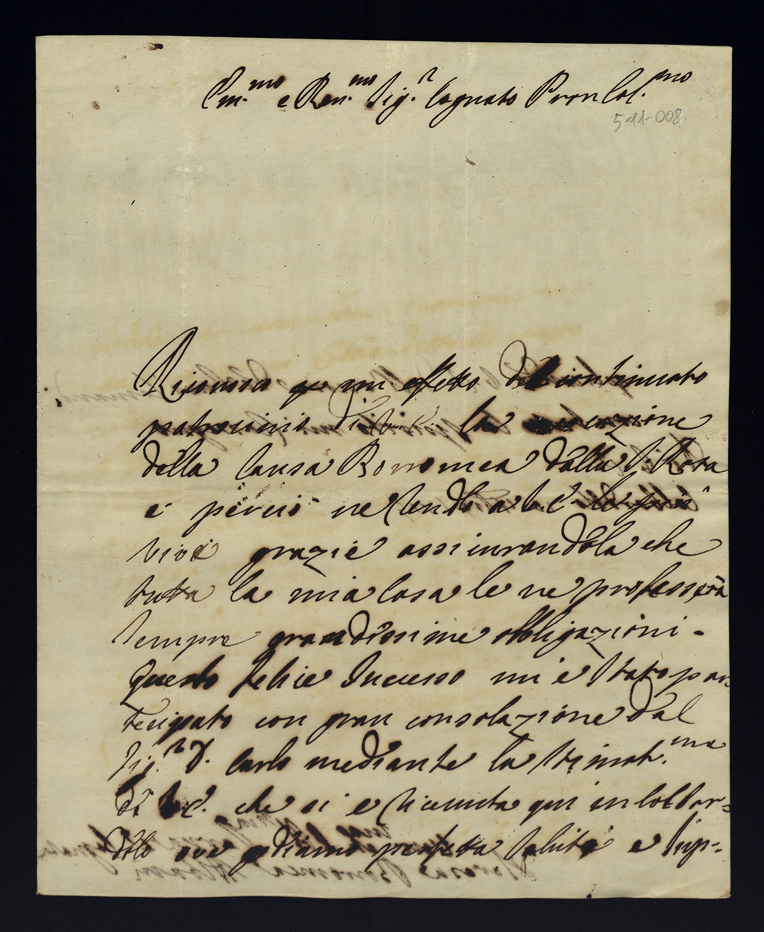 Em.mo e Rev.mo Sig.r Cognato Pron Col.mo
5-11-008
Riconosco per un effetto del continuato
patrocinio la
della Causa Bonomea dalla S. Rota
e perciò ne rendo a V.E. le più
vive grazie assicurandola che
tutta la mia Casa le ne professerà
sempre grandissime obbligazioni.
Questo felice Successo mi è stato par
tecipato con gran consolazione dal
Sig.r D. Carlo mediante la Stimat.ma
di V.E. che si è ricevuta qui in
ove godiamo perfetta salute e sup=